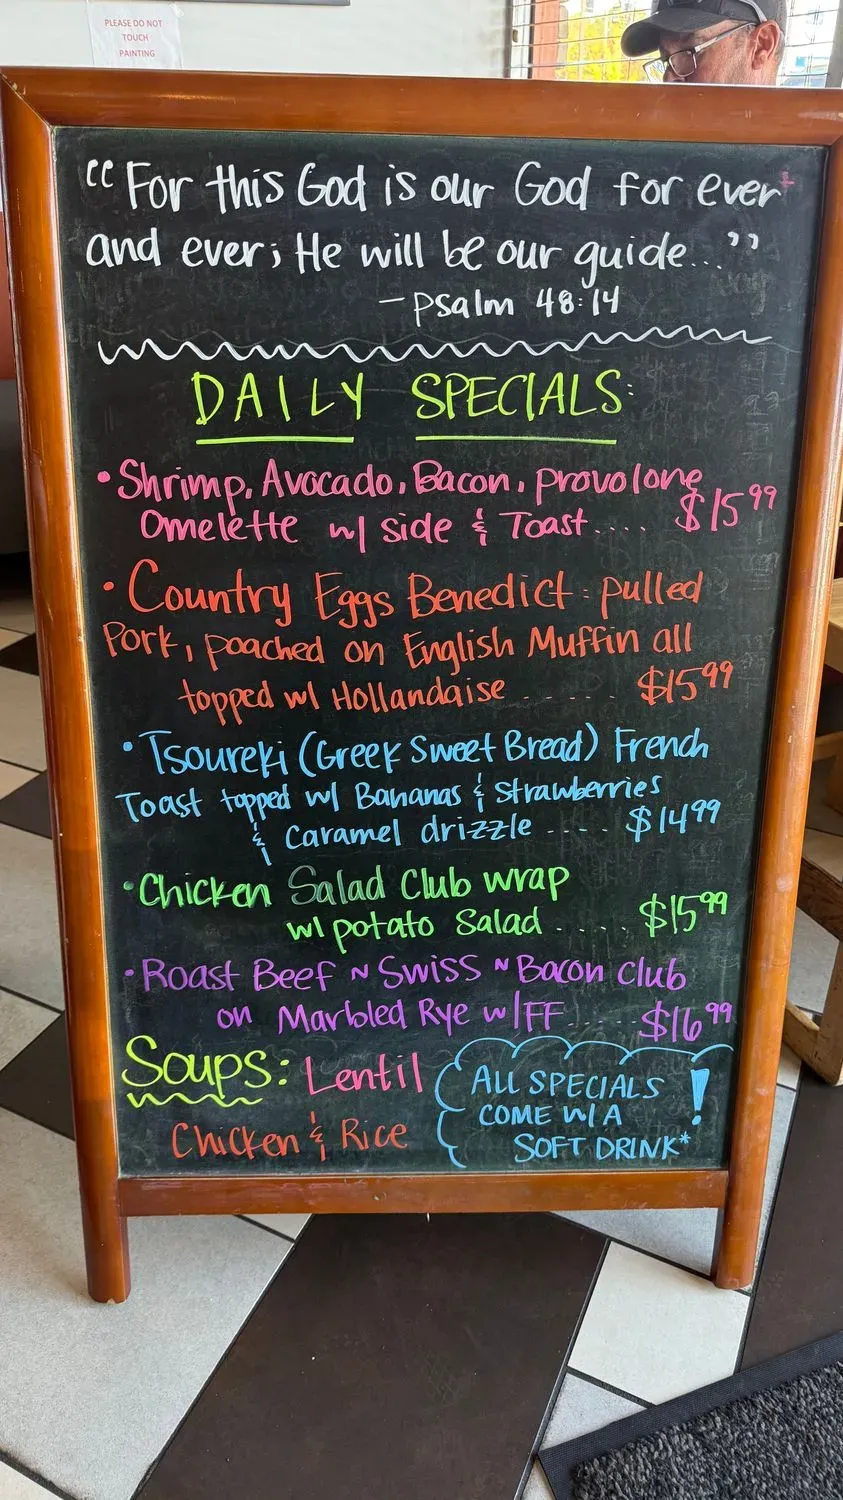 PLEASE DO NOT
TOUCH
PAINTING
"For this God is our God for ever
and ever; He will be our guide..."
- Psalm 48:14
DAILY SPECIALS:
• Shrimp, Avocado, Bacon, provolone
Omelette w/ side & Toast.... $15.99
• Country Eggs Benedict: pulled
Pork, poached on English Muffin all
topped w/ Hollandaise ....... $15.99
• Tsoureki (Greek Sweet Bread) French
Toast topped w/ Bananas & Strawberries
& Caramel drizzle .... $14.99
• Chicken Salad Club wrap
w/ potato Salad ..... $15.99
• Roast Beef ~ Swiss ~ Bacon Club
on Marbled Rye w/FF ..... $16.99
Soups: Lentil
Chicken & Rice
ALL SPECIALS
COME W/ A
SOFT DRINK*!